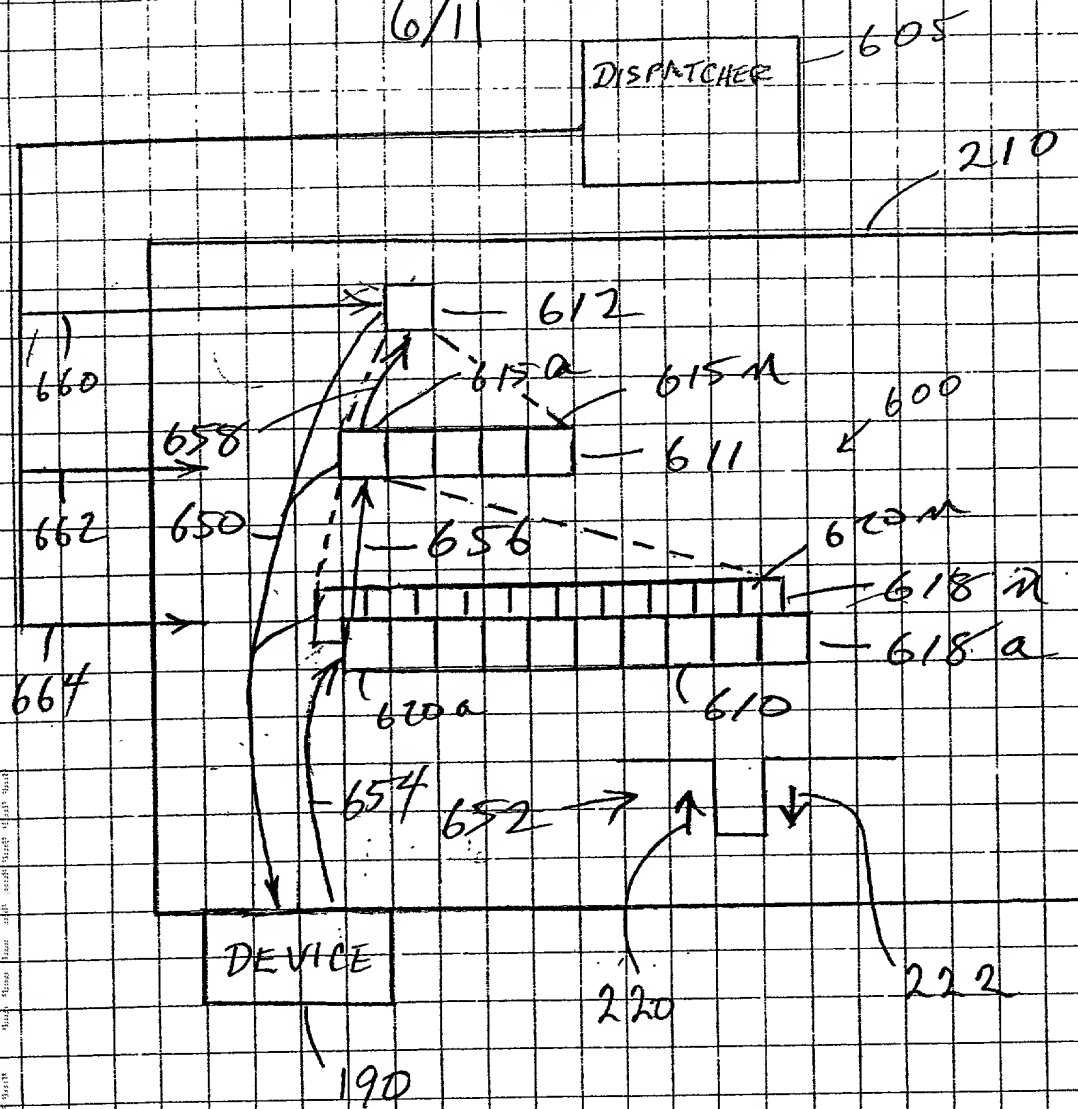 6/11
605
DISPATCHER
210
612
660
615a
615n
600
658
611
662
650
656
620n
618n
618a
664
620a
610
654
652
DEVICE
220
222
190